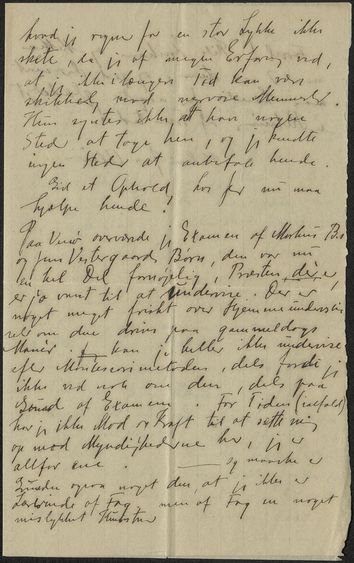 hvad jeg regner for en stor Lykke ikke
skete, da jeg af megen Erfaring ved,
at jeg ikke længere Tid kan være
skikkelig mod nervøse Mennesker.
Hun syntes ikke, at have nogen
Sted at tage hen, og jeg kendte
ingen Steder at anbefale hende.
Gid et Ophold hos jer nu maa
hjælpe hende!
Paa Venø overværede jeg Examen af Martius B's
og Jens Vestergaards Børn, den var nu
en hel Del fornøjelig, Præsten der er
er jo vant til at undervise. Der er
noget meget friskt over Hjemmeundervis
om den drives paa gammeldags
Manér, jeg kan jo heller ikke undervise
efter Montessorimetoden, dels fordi jeg
ikke ved nok om den, dels paa
Grund af Examen. For Tiden (ialfald)
har jeg ikke Mod og Kraft til at sætte mig
op mod Myndighederne her, jeg er
altfor ene. — og maaske er
Grunden ogsaa noget den, at jeg ikke er
Lærerinde af Fag, men af Fag en noget
mislykket